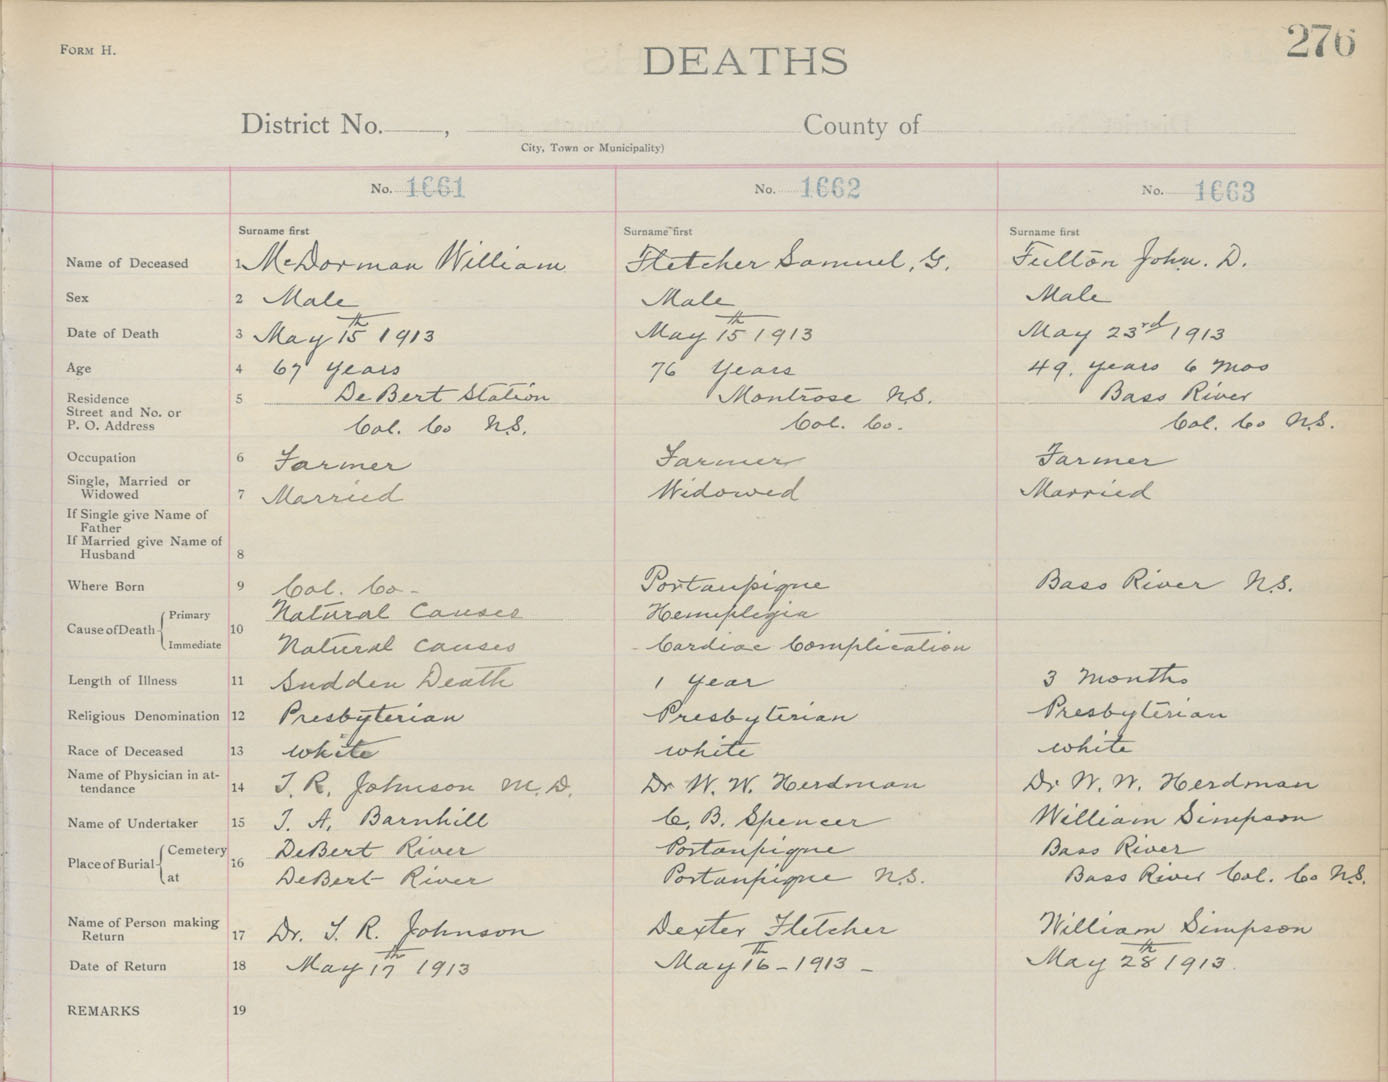 FORM H.
276
DEATHS
District No. , County of
City, Town or Municipality)
No. 1661 No. 1662 No. 1663
Surname first Surname first Surname first
Name of Deceased 1 McDorman William Fletcher Samuel, G. Fulton John. D.
Sex 2 Male Male Male
Date of Death 3 May 15th 1913 May 15th 1913 May 23rd 1913
Age 4 67 years 76 Years 49. years 6 Mos
Residence 5 DeBert Station Montrose N.S. Bass River
Street and No. or
P. O. Address Col. Co N.S. Col. Co. Col. Co N.S.
Occupation 6 Farmer Farmer Farmer
Single, Married or
Widowed 7 Married Widowed Married
If Single give Name of
Father
If Married give Name of
Husband 8
Where Born 9 Col. Co - Portaupique Bass River N.S.
Primary Natural Causes Hemiplegia
Cause of Death 10
Immediate Natural causes - Cardiac Complication
Length of Illness 11 Sudden Death 1 year 3 months
Religious Denomination 12 Presbyterian Presbyterian Presbyterian
Race of Deceased 13 white white white
Name of Physician in at-
tendance 14 T. R. Johnson M.D. Dr W. W. Herdman Dr W. W. Herdman
Name of Undertaker 15 T. A. Barnhill C. B. Spencer William Simpson
Cemetery DeBert River Portaupique Bass River
Place of Burial 16
at DeBert River Portaupique N.S. Bass River Col. Co N.S.
Name of Person making
Return 17 Dr. T. R. Johnson Dexter Fletcher William Simpson
Date of Return 18 May 17th 1913 May 16th - 1913 - May 28th 1913.
REMARKS 19